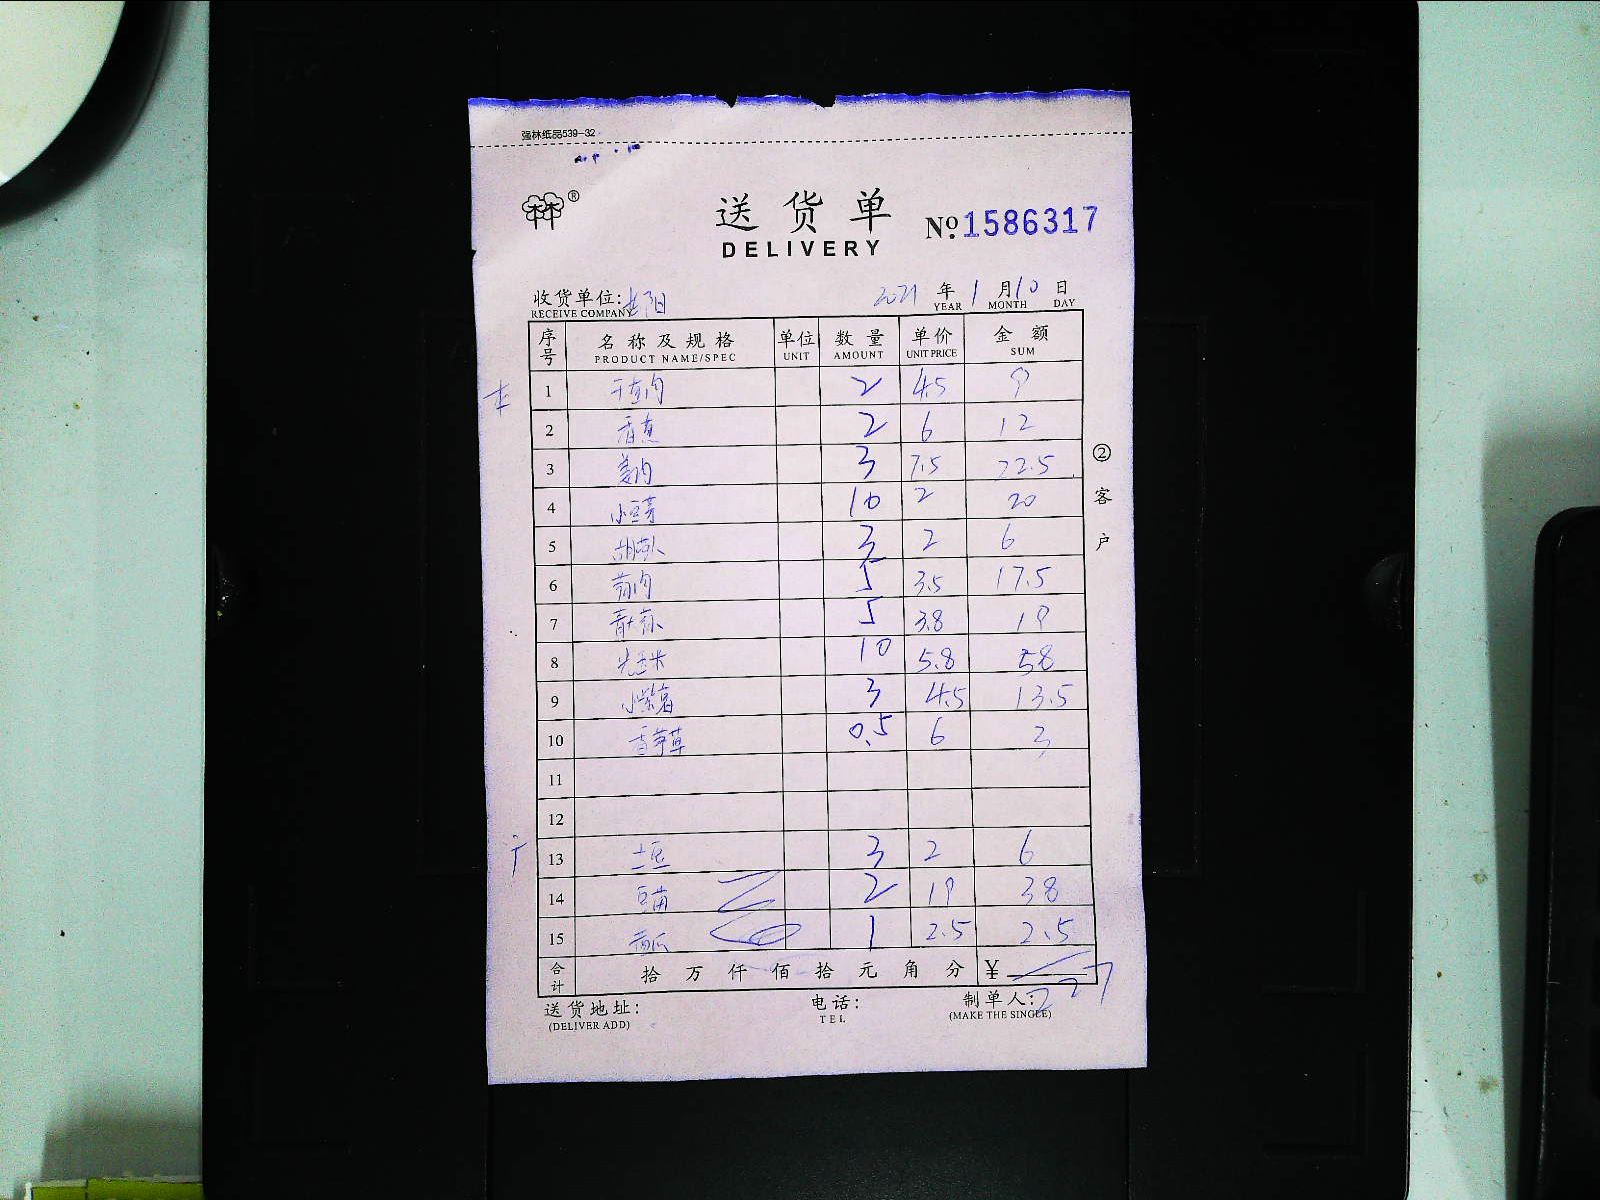 强林纸品539-32
®
送货单
DELIVERY
№1586317
收货单位:
RECEIVE COMPANY
2021年1月10日
YEAR MONTH DAY
序号 名称及规格 单位 数量 单价 金额
PRODUCT NAME/SPEC UNIT AMOUNT UNIT PRICE SUM
1 2 4.5 9
2 香蕉 2 6 12
3 姜肉 3 7.5 22.5
4 小豆芽 10 2 20
5 3 2 6
6 5 3.5 17.5
7 5 3.8 19
8 玉米 10 5.8 58
9 小紫薯 3 4.5 13.5
10 香茅草 0.5 6 3
11
12
13 土豆 3 2 6
14 豆苗 2 19 38
15 1 2.5 2.5
合计 拾万仟佰拾元角分 ¥ 227
②客户
送货地址: 电话: 制单人:
(DELIVER ADD) TEL (MAKE THE SINGLE)